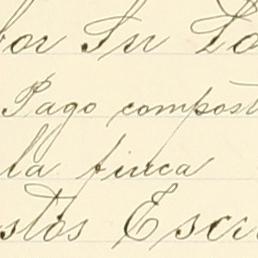 por Su Lo
Pago compost
la finca
stos Escri